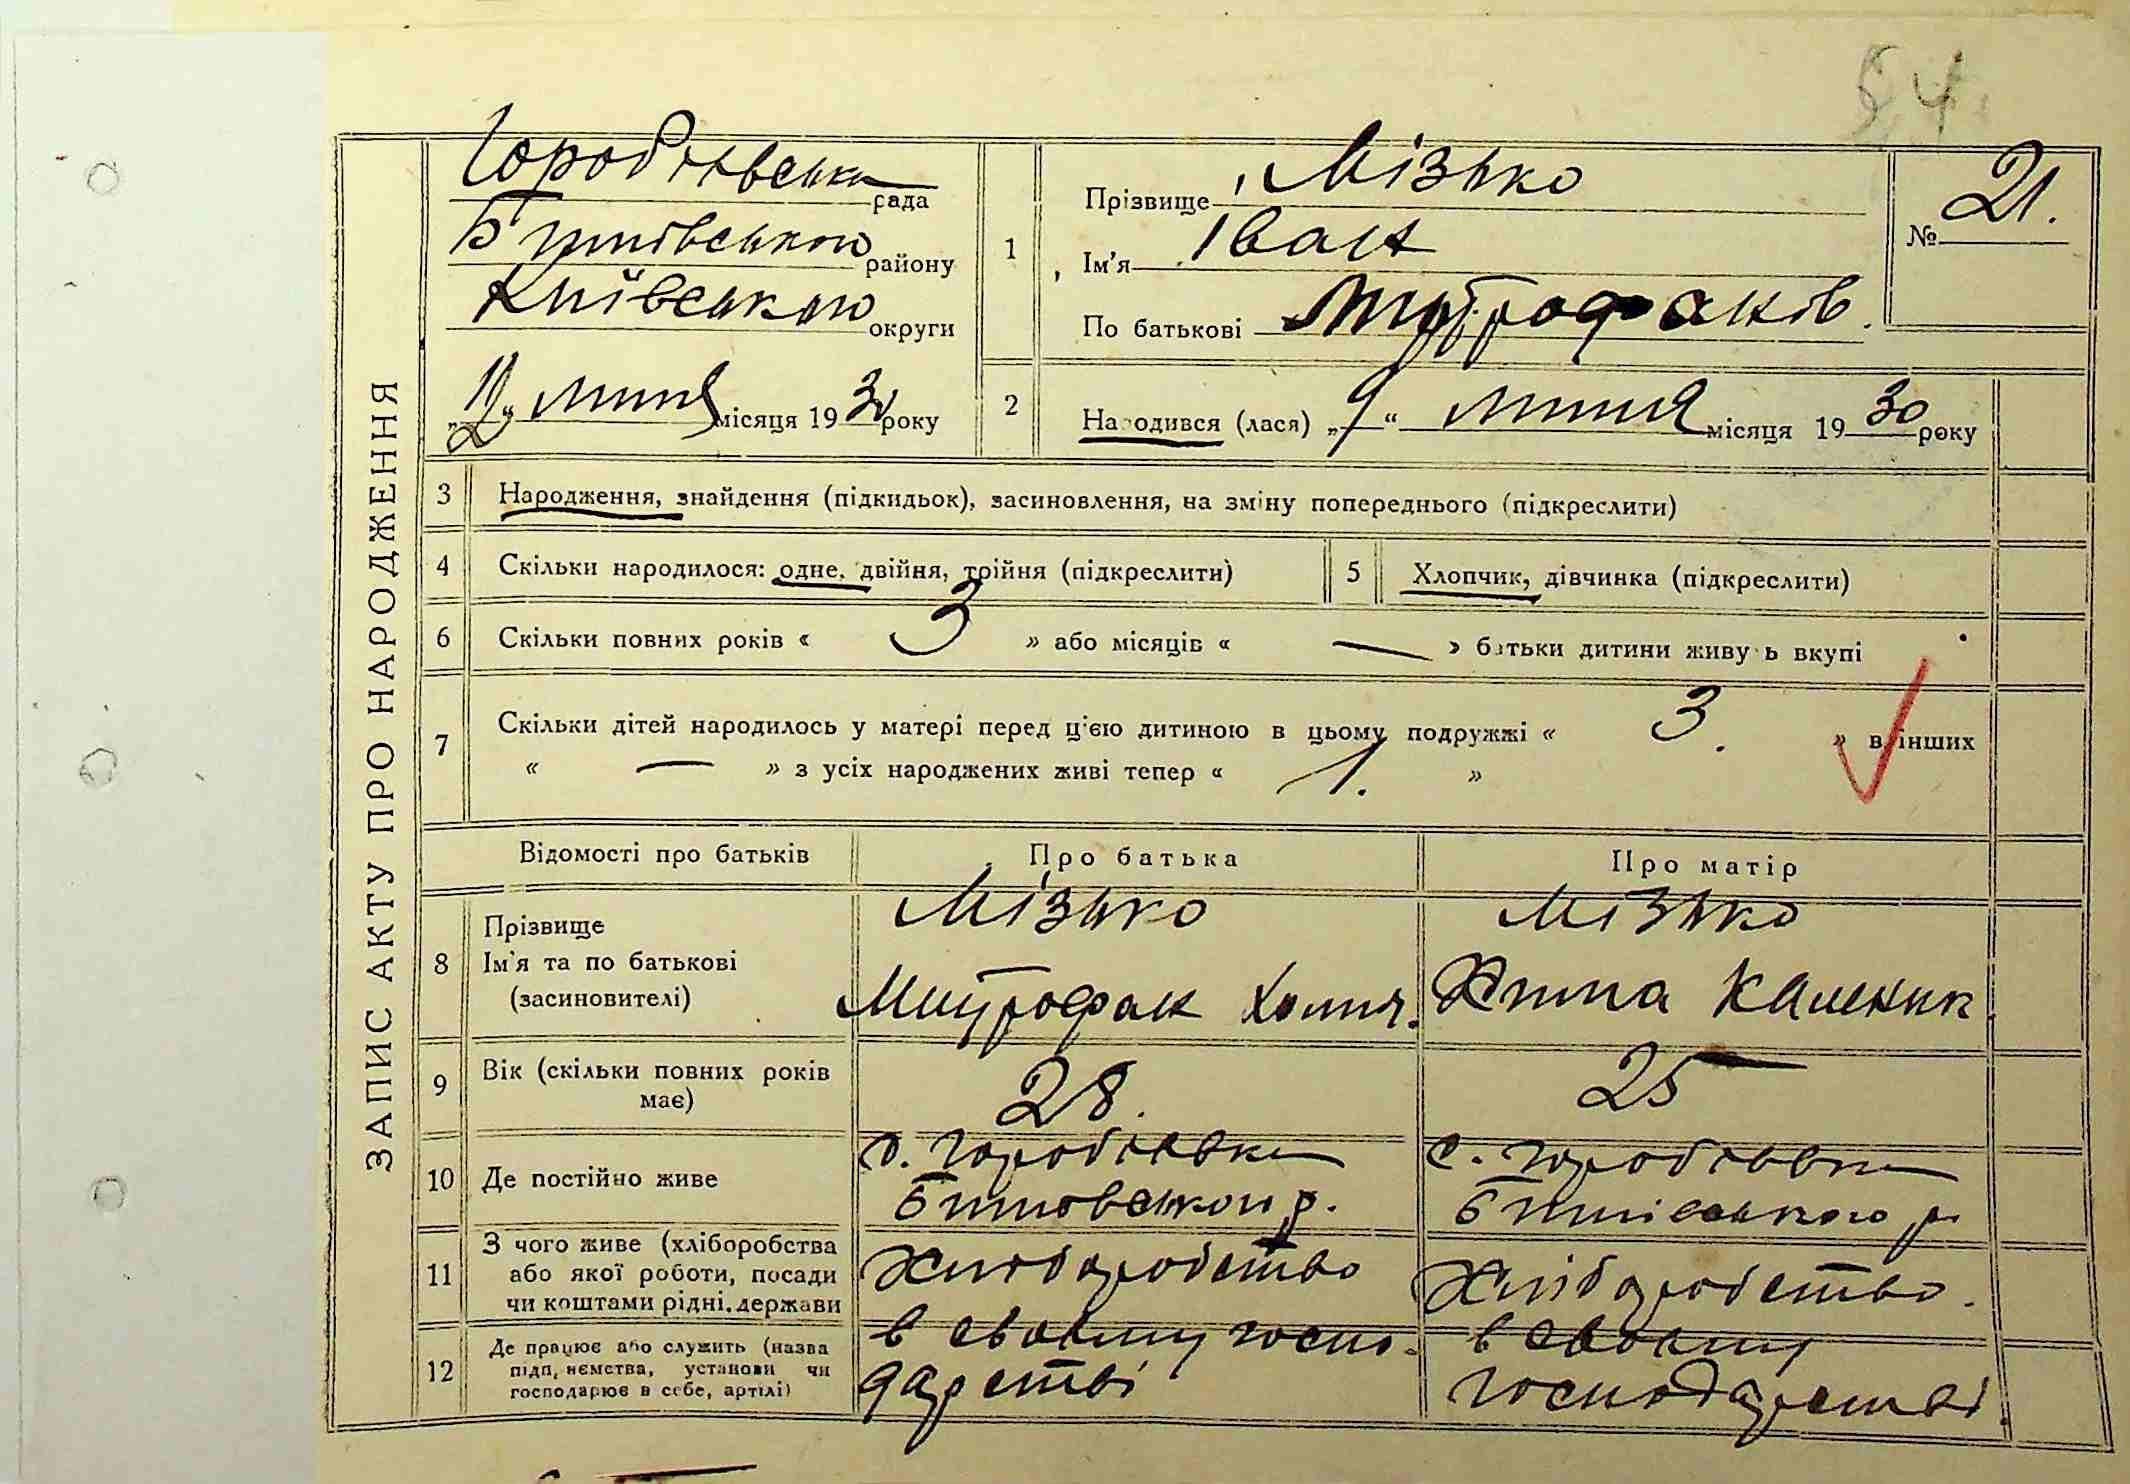 54
ЗАПИС АКТУ ПРО НАРОДЖЕННЯ
Городівська рада
Бишівського району
Київської округи
„12“ липня місяця 1930 року
1
Прізвище Мізько
Ім'я Іван
По батькові Митрофанів.
№ 21.
2 Народився (лася) „9“ липня місяця 1930 року
3 Народження, знайдення (підкидьок), засиновлення, на зміну попереднього (підкреслити)
4 Скільки народилося: одне, двійня, трійня (підкреслити)
5 Хлопчик, дівчинка (підкреслити)
6 Скільки повних років « 3 » або місяців « — » батьки дитини живуть вкупі
7 Скільки дітей народилось у матері перед ц'єю дитиною в цьому подружжі « 3. » в інших
« — » з усіх народжених живі тепер « 1. »
Відомості про батьків Про батька Про матір
8 Прізвище
Ім'я та по батькові
(засиновителі)
Мізько
Митрофан Хомич.
Мізько
Каленик.
9 Вік (скільки повних років
має)
28.
25
10 Де постійно живе
с.
Бишовського р.
с.
Бишівського р.
11 З чого живе (хліборобства
або якої роботи, посади
чи коштами рідні, держави
Хліборобство
Хліборобство.
12 Де працює або служить (назва
підп,иємства, установи чи
господарює в себе, артілі)
в своєму госпо-
дарстві
в своєму
господарстві.